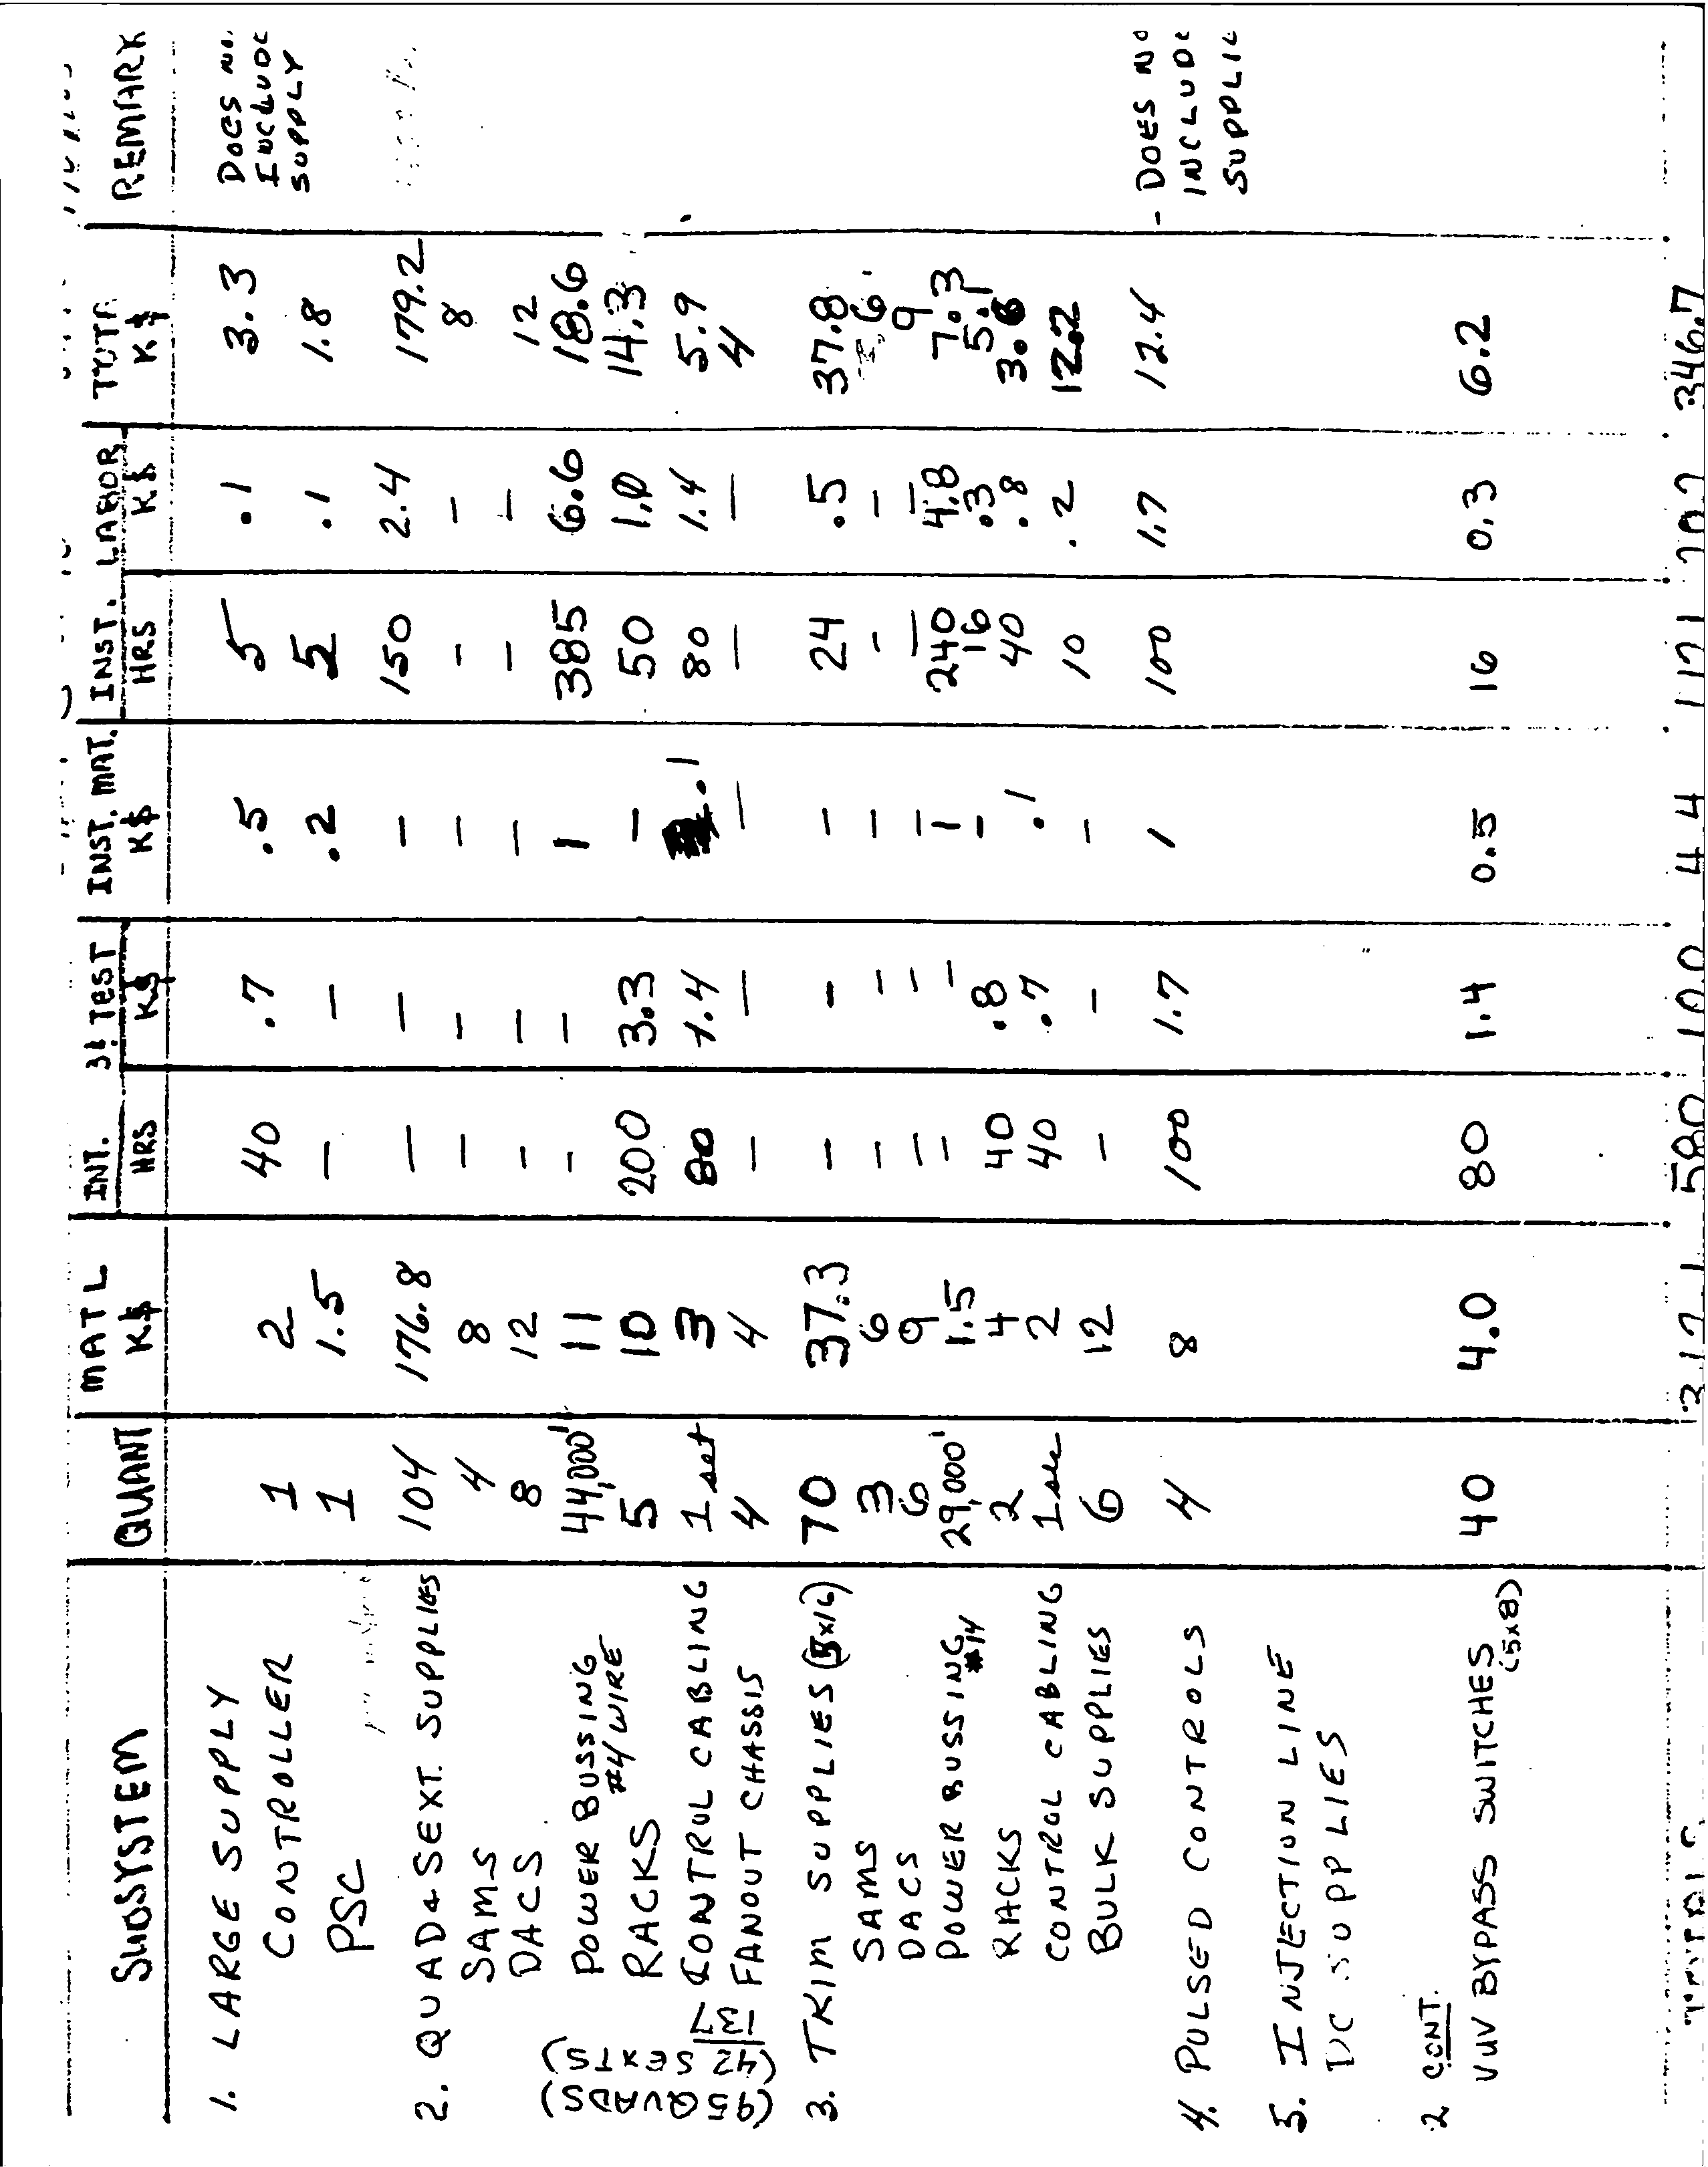 SUBSYSTEM QUANT MAT L K$ INT. HRS & TEST K$ INST. MAT. K$ INST. HRS LABOR K$ K$ REMARK
1. LARGE SUPPLY
CONTROLLER 1 2 40 .7 .5 5 .1 3.3 DOES
INCLUDE
SUPPLY
PSC 1 1.5 — — .2 5 .1 1.8
2. QUAD & SEXT. SUPPLIES 104 176.8 — — — 150 2.4 179.2
SAMS 4 8 — — — — — 8
DACS 8 12 — — — — — 12
POWER BUSSING 44,000' 11 — — 1 385 6.6 18.6
#4 WIRE
RACKS 5 10 200 3.3 — 50 1.0 14.3
CONTROL CABLING 1 set 3 80 1.4 .1 80 1.4 5.9
FANOUT CHASSIS 4 4 — — — — — 4
(95 QUADS)
(42 SEXTS)
137
3. TRIM SUPPLIES (5x16) 70 37.3 — — — 24 .5 37.8
SAMS 3 6 — — — — — 6
DACS 6 9 — — — — — 9
POWER BUSSING #14 29,000' 1.5 — — 1 240 4.8 7.3
RACKS 2 4 40 .8 — 16 .3 5.1
CONTROL CABLING 1 2 40 .7 .1 40 .8 3.6
BULK SUPPLIES 6 12 — — — 10 .2 12.2
4. PULSED CONTROLS 4 8 100 1.7 1 100 1.7 12.4 - DOES NO
INCLUDE
SUPPLIE
5. INJECTION LINE
DC SUPPLIES
2 CONT.
VUV BYPASS SWITCHES 40 4.0 80 1.4 0.5 16 0.3 6.2
(5x8)
580 346.7